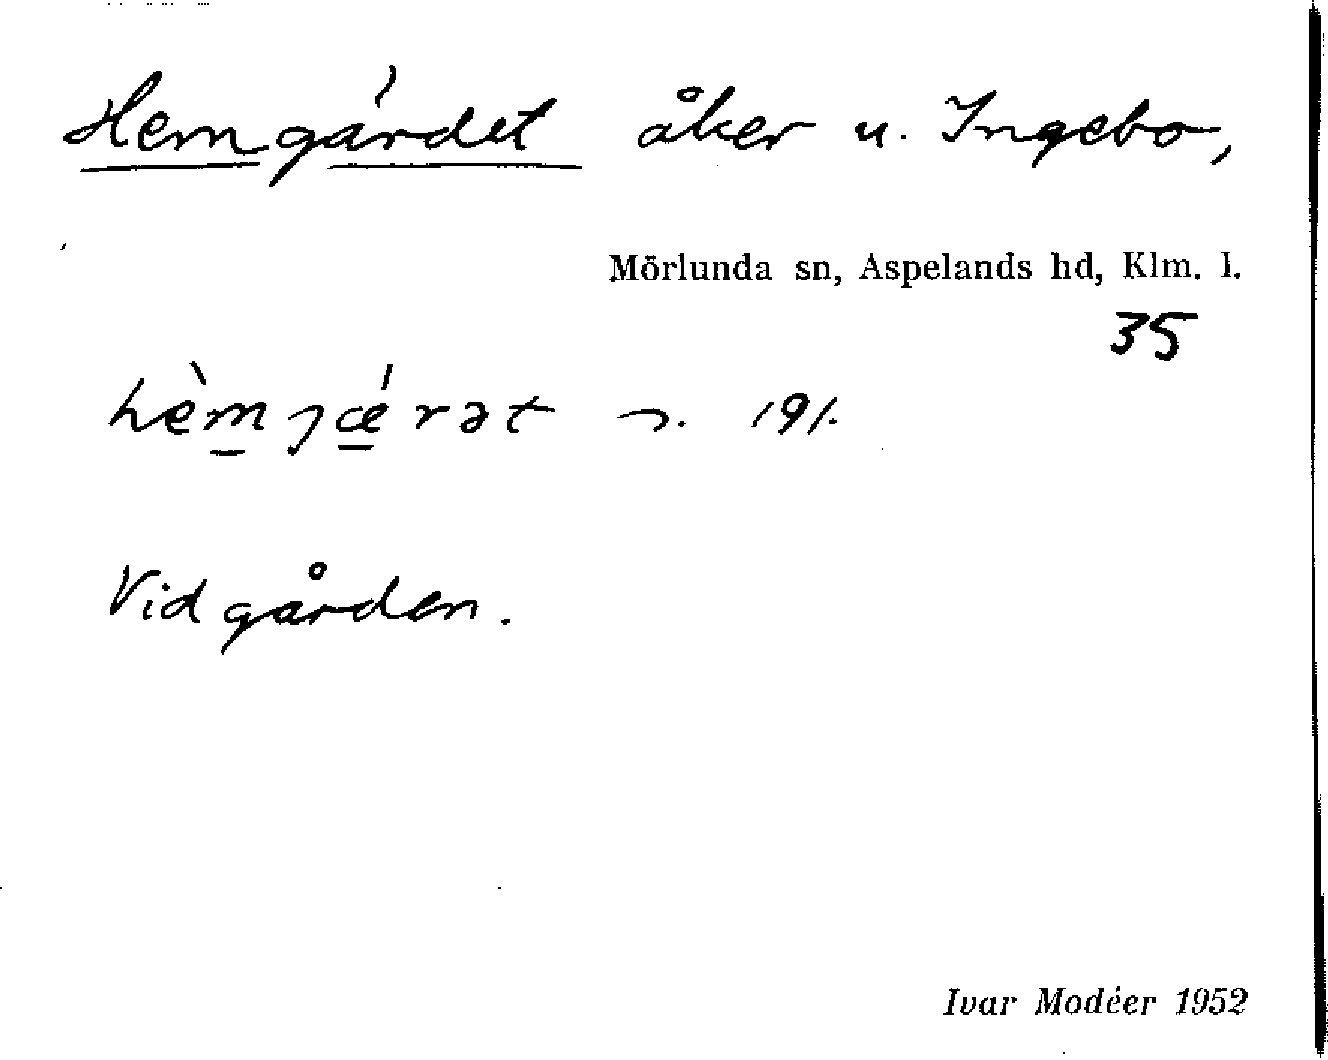 Hemgärdet åker u. Ingebo,
Mörlunda sn, Aspelands hd, Klm. l.
35
hèm̲ȷǽ̲rət n. 191.
Vid gården.
Ivar Modéer 1952